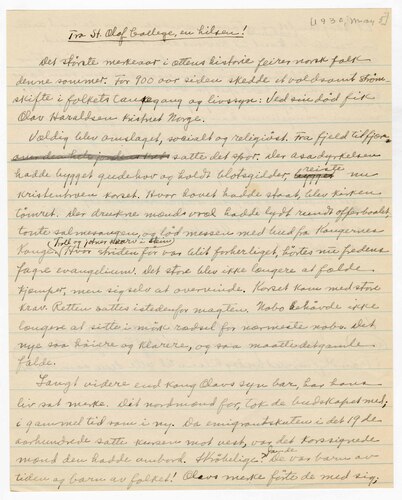 [1930, May 5]
Fra St. Olaf College, en hilsen!
Det största merkeaar i ættens historie feirer norsk folk
denne sommer. For 900 aar siden skedde et voldsomt ström-
skifte i folkets tankegang og livssyn: Ved sin död fik
Olav Haraldsön kristnet Norge.
Vældig blev omslaget, socialt og religiöst. Fra fjeld til fjære
satte det spor. Der asadyrkelsen
hadde bygget gudehov og holdt blotsgilder, reiste nu
kristentroen korset. Hvor hovet hadde staat, blev kirken
tömret. Der drukne mænds vræl hadde lydt rundt offerbaalet,
tonte salmesangen, og löd messen med bud fra Kongernes
Konge. (Tolk og johus skaarv i stein)
Hvor striden för var blit forherliget, hörtes nu fredens
fagre evangelium. Det store blev ikke længere at fælde
kjæmper, men sig selv at overvinde. Korset kom med store
krav. Retten sattes istedenfor magten. Nabo behövde ikke
længere at sitte i mörk rædsel for nærmeste nabo. Det
nye saa höiere og klarere, og saa maatte det gamle
falde.
Langt videre end kong Olavs syn bar, har hans
liv sat merke. Dit nordmænd for, tok de budskapet med;
i gammel tid som i ny. Da emigrantskuten i det 19 de
aarhundrede satte kursen mot vest, var det korssignede
mænd den hadde ombord. Stræbelige de var barn av
tiden og barn av folket! Olavs merke förte de med sig;